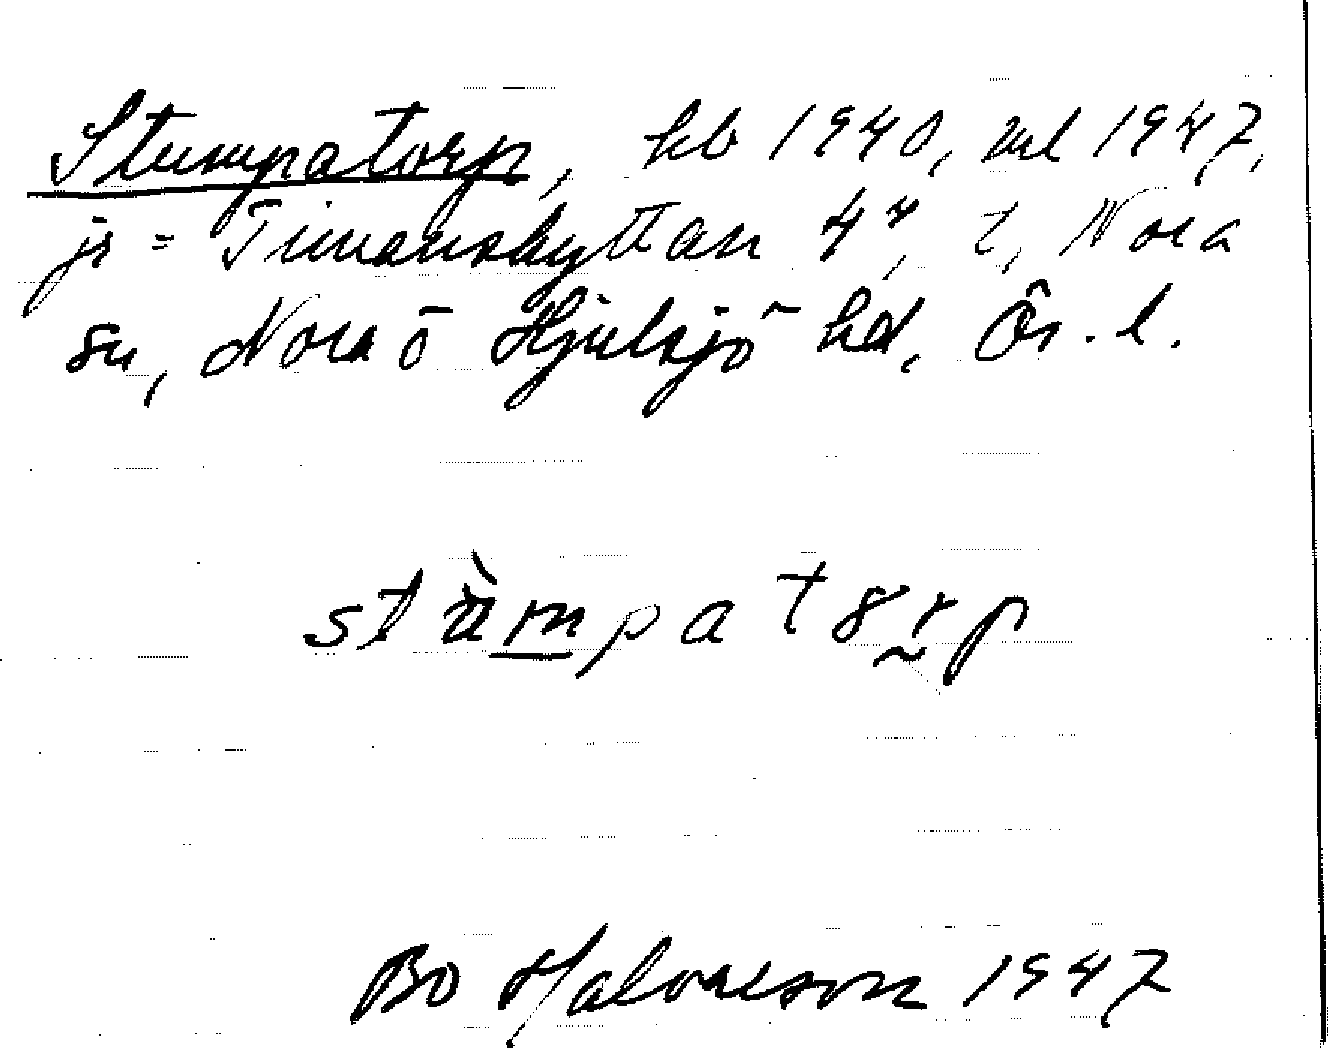 Stumpatorp, kb 1940, ml 1947,
js = Timanshyttan 4⁴, t, Nora
sn, Nora o Hjulsjö hd, Ör. l.
stùmpatørp
Bo Halvarson 1947